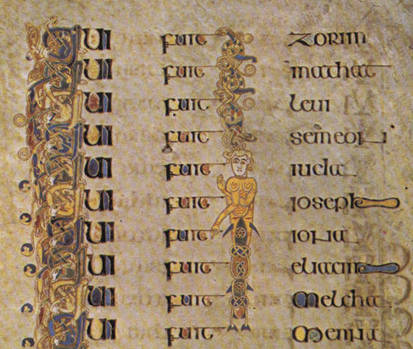 QUI fuit zorim
QUI fuit mathat
QUI fuit leui
QUI fuit semeon
QUI fuit iuda
QUI fuit ioseph
QUI fuit iona
QUI fuit eliacim
QUI fuit melcha
QUI fuit menna